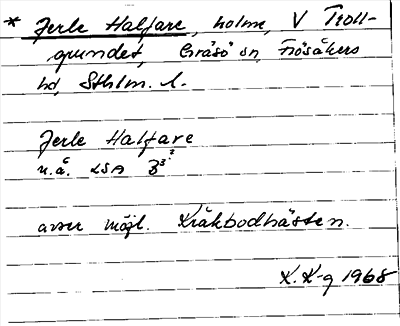 * Jerle Halfare, holme, V Troll-
grundet, Gräsö sn, Frösåkers
hd, Sthlm. l.
Jerle Halfare
u.å. LSA B³:²
avser möjl. Kråkbodhästen.
K. K-g 1968